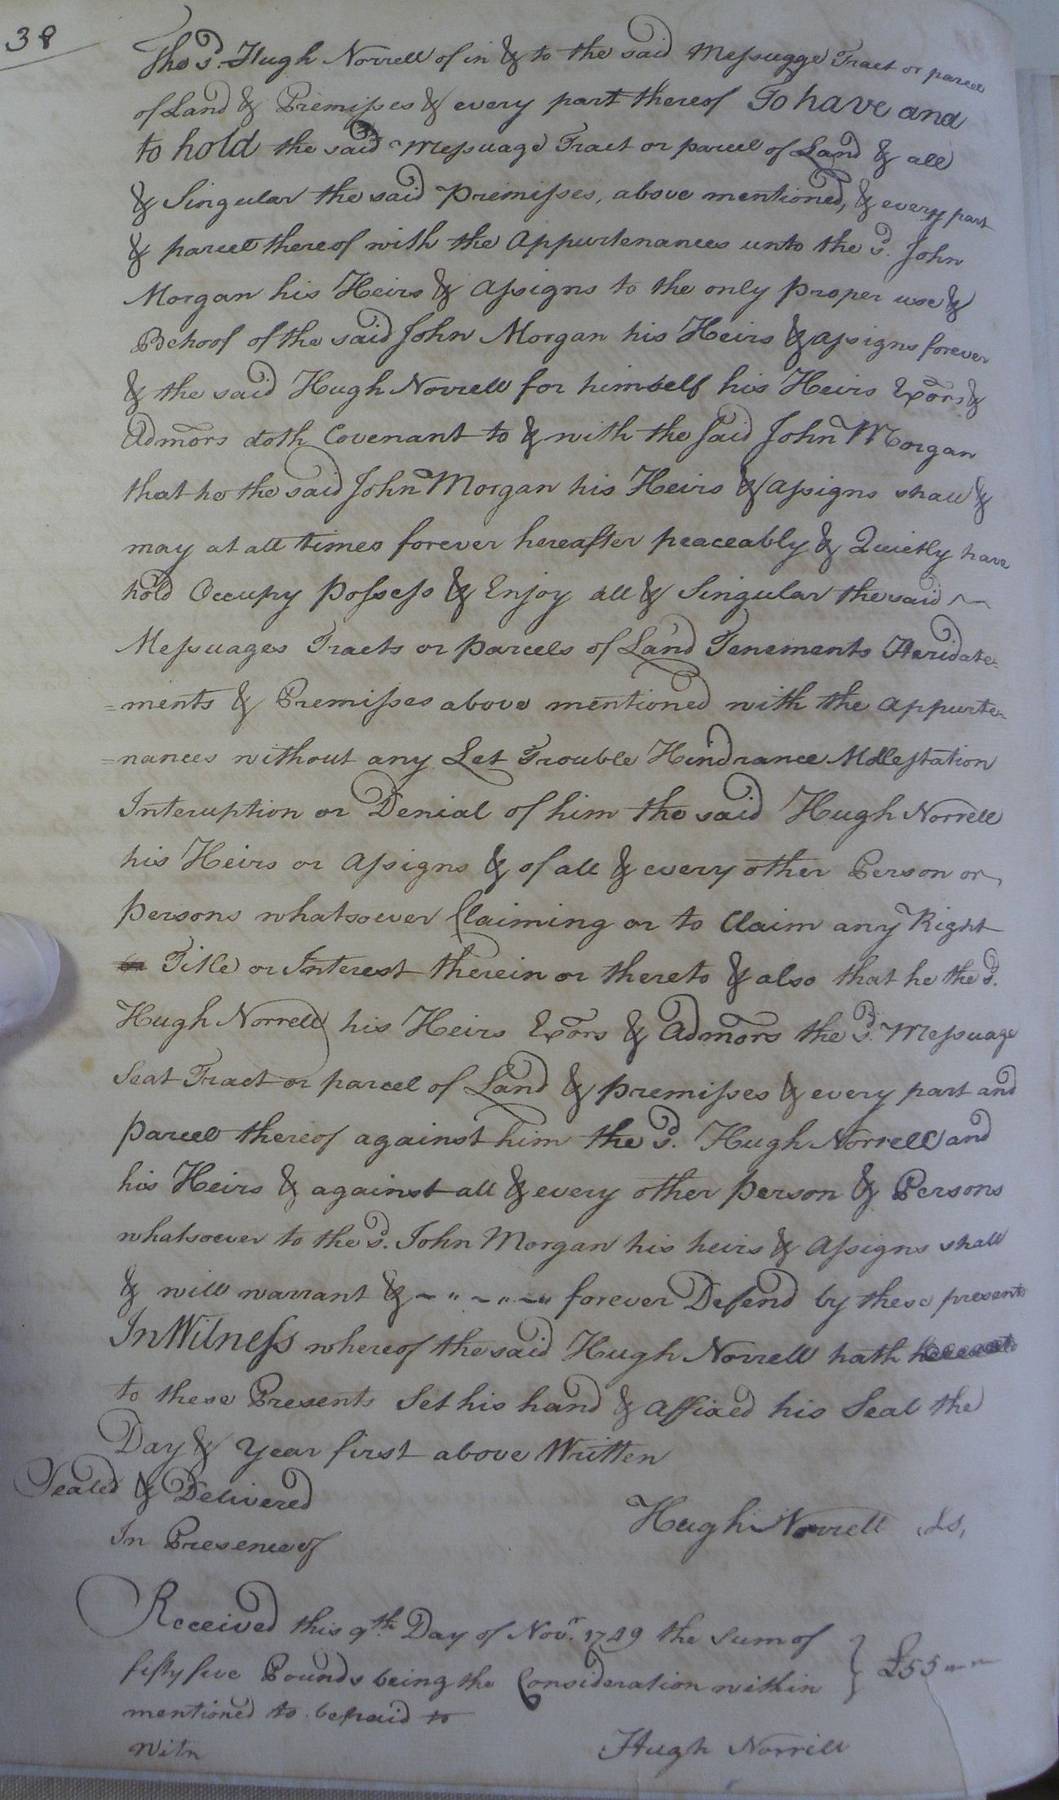 38
the sd. Hugh Norrell of in & to the said Messuage Tract or parcel
of Land & Premisses & every part thereof To have and
to hold the said Messuage Tract or parcel of Land & all
& Singular the said Premisses, above mentioned, & every part
& parcel thereof with the Appurtenances unto the sd. John
Morgan his Heirs & Assigns to the only proper use &
Behoof of the said John Morgan his Heirs & Assigns forever
& the said Hugh Norrell for himself his Heirs Exors &
Admors doth Covenant to & with the said John Morgan
that he the said John Morgan his Heirs & Assigns shall &
may at all times forever hereafter peaceably & Quietly have
hold Occupy Possess & Enjoy all & Singular the said
Messuages Tracts or parcels of Land Tenements Heridate=
=ments & Premisses above mentioned with the Appurte=
=nances without any Let Trouble Hindrance Mollestation
Interuption or Denial of him the said Hugh Norrell
his Heirs or Assigns & of all & every other Person or
Persons whatsoever Claiming or to Claim any Right
or Title or Interest therein or thereto & also that he the sd.
Hugh Norrell his Heirs Exors & Admors the sd. Messuage
Seat Tract or parcel of Land & premisses & every part and
parcel thereof against him the sd. Hugh Norrell and
his Heirs & against all & every other person & Persons
whatsoever to the sd. John Morgan his heirs & Assigns shall
& will warrant & ~ " ~ " ~ " forever Defend by these presents
In Witness whereof the said Hugh Norrell hath
to these Presents Set his hand & affixed his Seal the
Day & Year first above Written
Sealed & Delivered
In Presence of
Hugh Norrell Ls,
Received this 9th Day of Novr. 1749 the Sum of
fifty five Pounds being the Consideration within
mentioned to be paid to
£55
Witn
Hugh Norrill